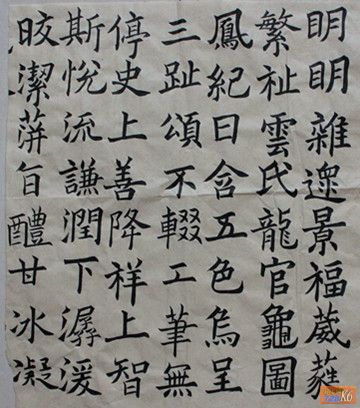 明明雜遝景福葳蕤
繁祉雲氏龍官龜圖
鳳紀日含五色烏呈
三趾頌不輟工筆無
停史上善降祥上智
斯悅流謙潤下潺湲
晈潔蓱旨醴甘冰凝
K6